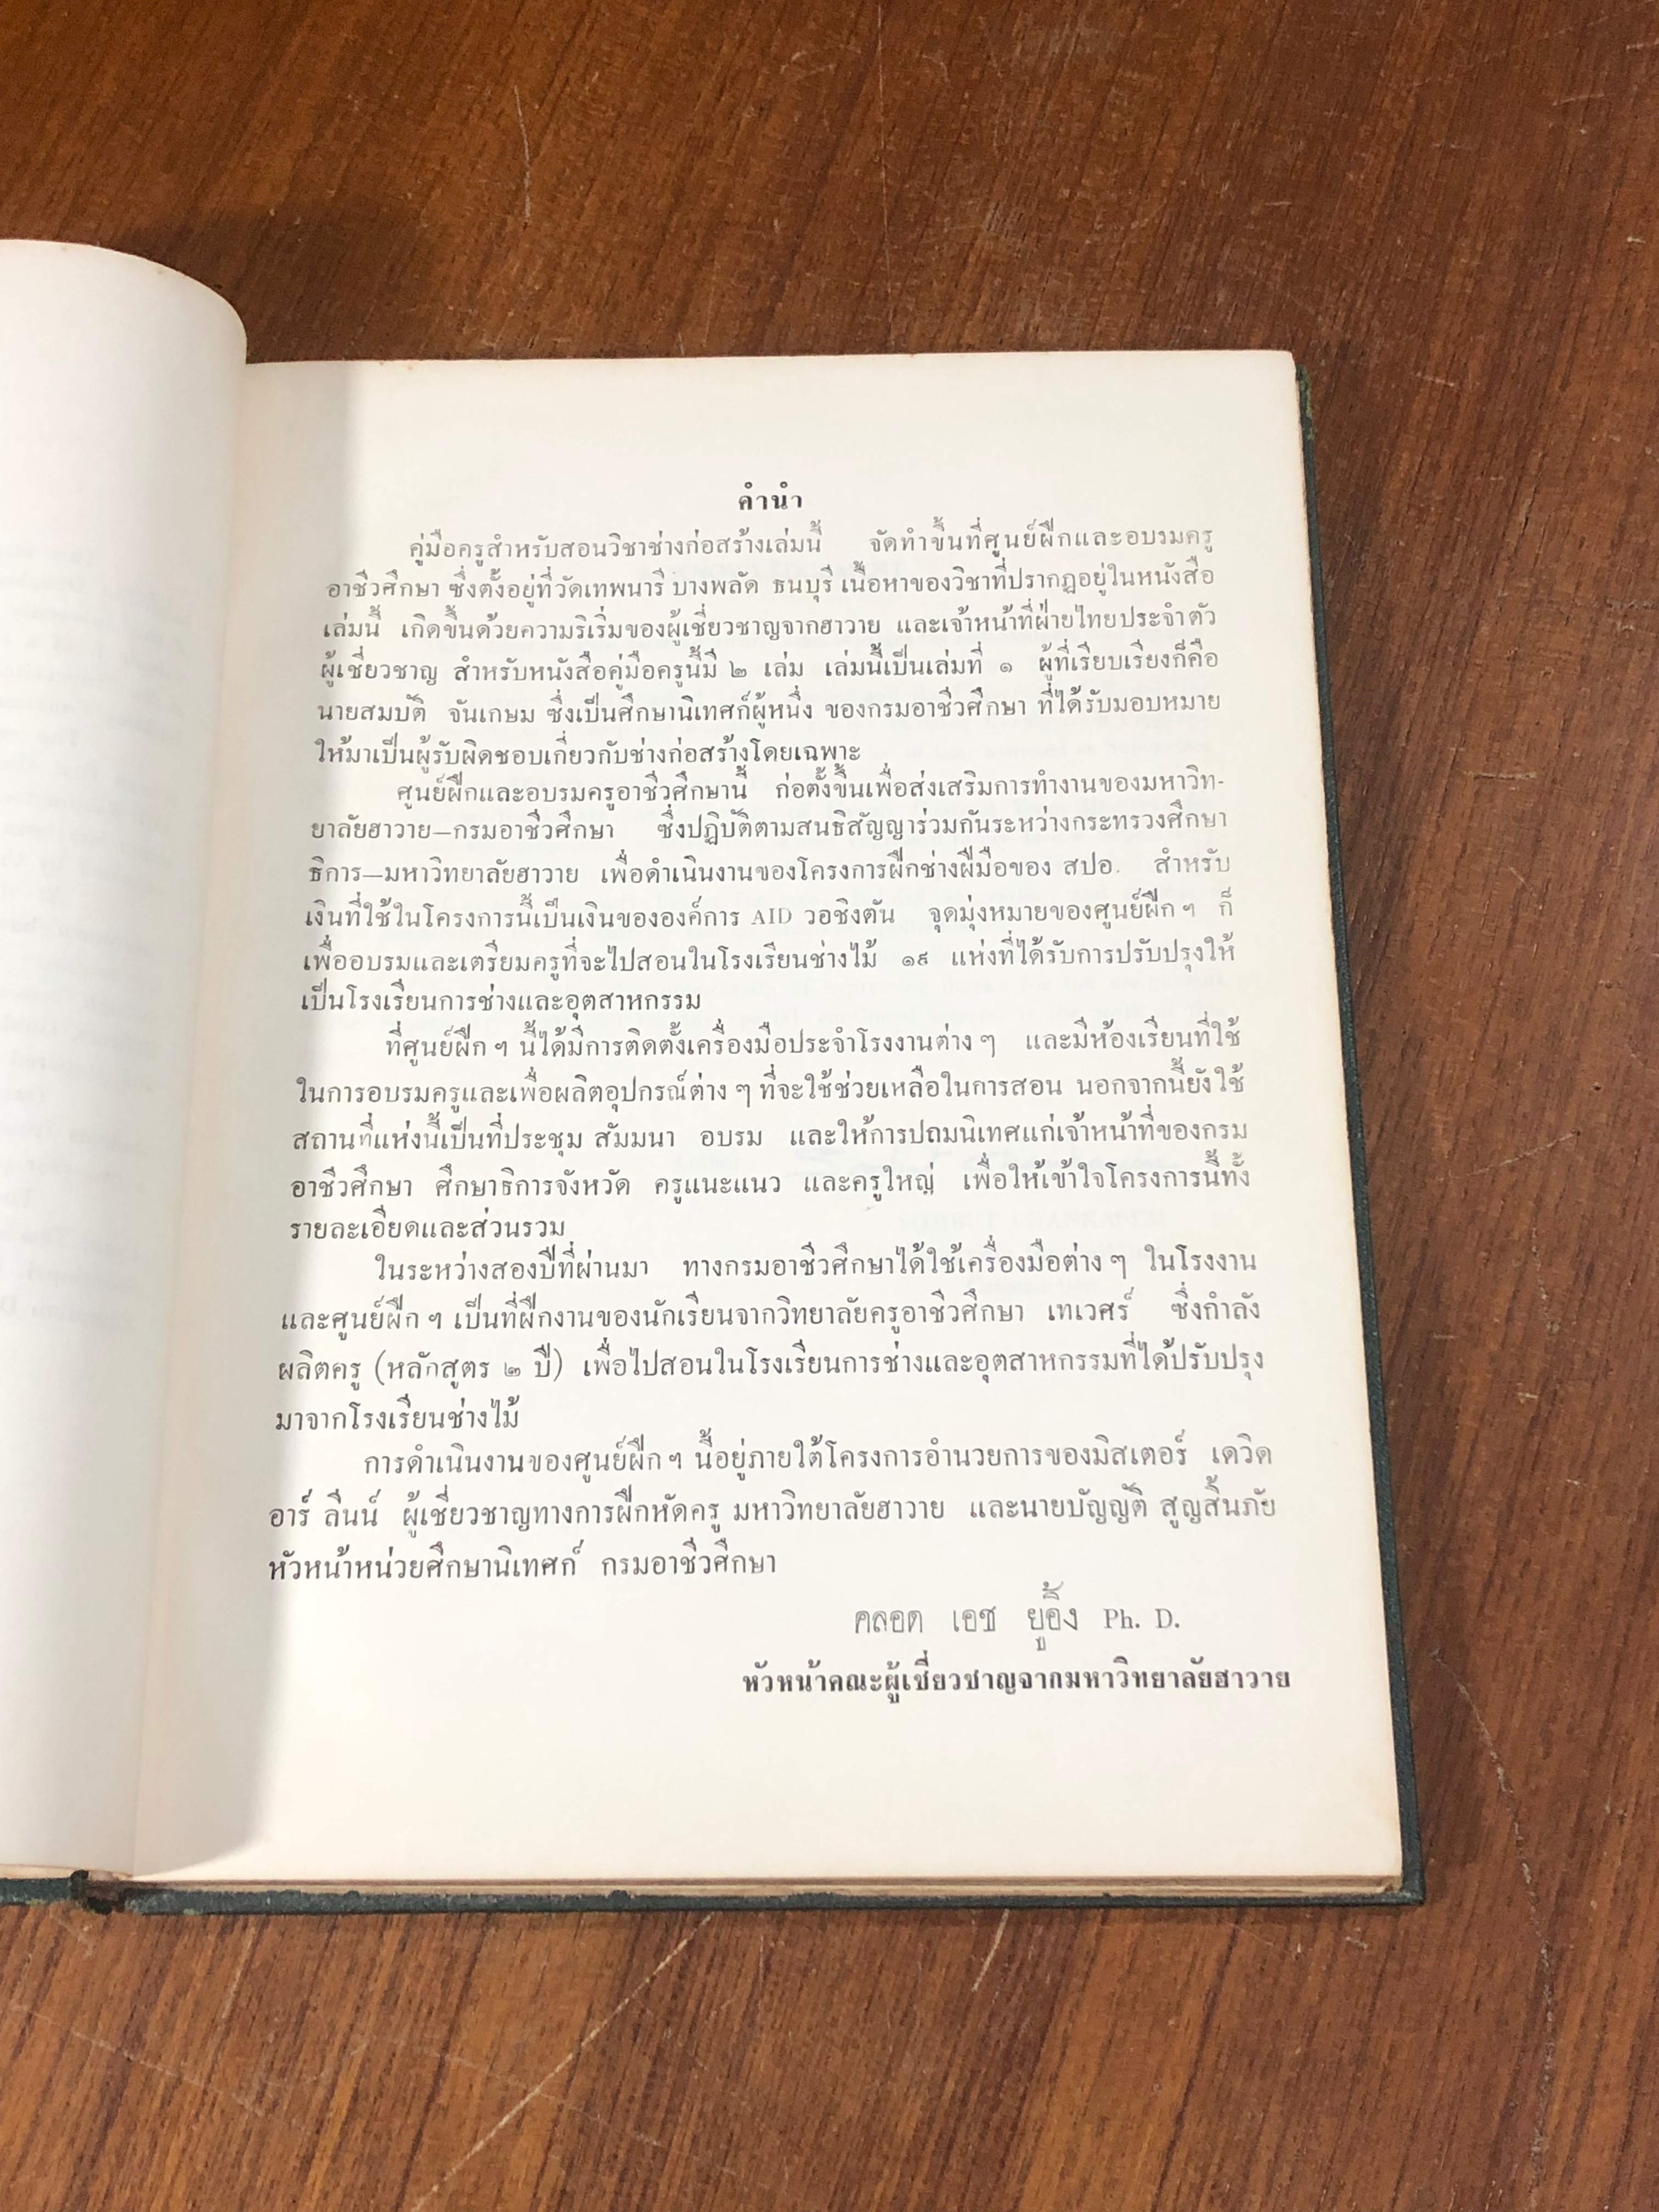 คำนำ
คู่มือครูสำหรับสอนวิชาช่างก่อสร้างเล่มนี้ จัดทำขึ้นที่ศูนย์ฝึกและอบรมครู
อาชีวศึกษา ซึ่งตั้งอยู่ที่วัดเทพนารี บางพลัด ธนบุรี เนื้อหาของวิชาที่ปรากฏอยู่ในหนังสือ
เล่มนี้ เกิดขึ้นด้วยความริเริ่มของผู้เชี่ยวชาญจากฮาวาย และเจ้าหน้าที่ฝ่ายไทยประจำตัว
ผู้เชี่ยวชาญ สำหรับหนังสือคู่มือครูนี้มี ๒ เล่ม เล่มนี้เป็นเล่มที่ ๑ ผู้ที่เรียบเรียงก็คือ
นายสมบัติ จันเกษม ซึ่งเป็นศึกษานิเทศก์ผู้หนึ่ง ของกรมอาชีวศึกษา ที่ได้รับมอบหมาย
ให้มาเป็นผู้รับผิดชอบเกี่ยวกับช่างก่อสร้างโดยเฉพาะ
ศูนย์ฝึกและอบรมครูอาชีวศึกษานี้ ก่อตั้งขึ้นเพื่อส่งเสริมการทำงานของมหาวิท-
ยาลัยฮาวาย—กรมอาชีวศึกษา ซึ่งปฏิบัติตามสนธิสัญญาร่วมกันระหว่างกระทรวงศึกษา
ธิการ—มหาวิทยาลัยฮาวาย เพื่อดำเนินงานของโครงการฝึกช่างฝีมือของ สปอ. สำหรับ
เงินที่ใช้ในโครงการนี้เป็นเงินขององค์การ AID วอชิงตัน จุดมุ่งหมายของศูนย์ฝึก ฯ ก็
เพื่ออบรมและเตรียมครูที่จะไปสอนในโรงเรียนช่างไม้ ๑๙ แห่งที่ได้รับการปรับปรุงให้
เป็นโรงเรียนการช่างและอุตสาหกรรม
ที่ศูนย์ฝึก ฯ นี้ได้มีการติดตั้งเครื่องมือประจำโรงงานต่าง ๆ และมีห้องเรียนที่ใช้
ในการอบรมครูและเพื่อผลิตอุปกรณ์ต่าง ๆ ที่จะใช้ช่วยเหลือในการสอน นอกจากนี้ยังใช้
สถานที่แห่งนี้เป็นที่ประชุม สัมมนา อบรม และให้การปถมนิเทศแก่เจ้าหน้าที่ของกรม
อาชีวศึกษา ศึกษาธิการจังหวัด ครูแนะแนว และครูใหญ่ เพื่อให้เข้าใจโครงการนี้ทั้ง
รายละเอียดและส่วนรวม
ในระหว่างสองปีที่ผ่านมา ทางกรมอาชีวศึกษาได้ใช้เครื่องมือต่าง ๆ ในโรงงาน
และศูนย์ฝึก ฯ เป็นที่ฝึกงานของนักเรียนจากวิทยาลัยครูอาชีวศึกษา เทเวศร์ ซึ่งกำลัง
ผลิตครู (หลักสูตร ๒ ปี) เพื่อไปสอนในโรงเรียนการช่างและอุตสาหกรรมที่ได้ปรับปรุง
มาจากโรงเรียนช่างไม้
การดำเนินงานของศูนย์ฝึก ฯ นี้อยู่ภายใต้โครงการอำนวยการของมิสเตอร์ เดวิด
อาร์ ลีนน์ ผู้เชี่ยวชาญทางการฝึกหัดครู มหาวิทยาลัยฮาวาย และนายบัญญัติ สูญสิ้นภัย
หัวหน้าหน่วยศึกษานิเทศก์ กรมอาชีวศึกษา
คลอด เอช ยูอิ้ง Ph. D.
หัวหน้าคณะผู้เชี่ยวชาญจากมหาวิทยาลัยฮาวาย